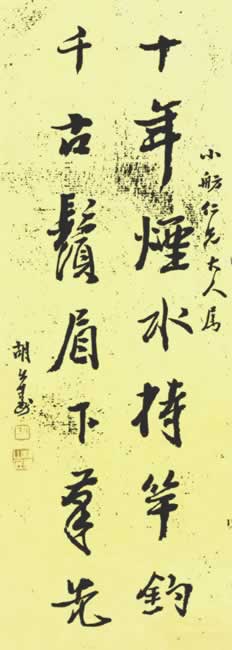 小舫仁兄大人屬
十年煙水持竿釣
千古鬚眉下筆先
胡公壽